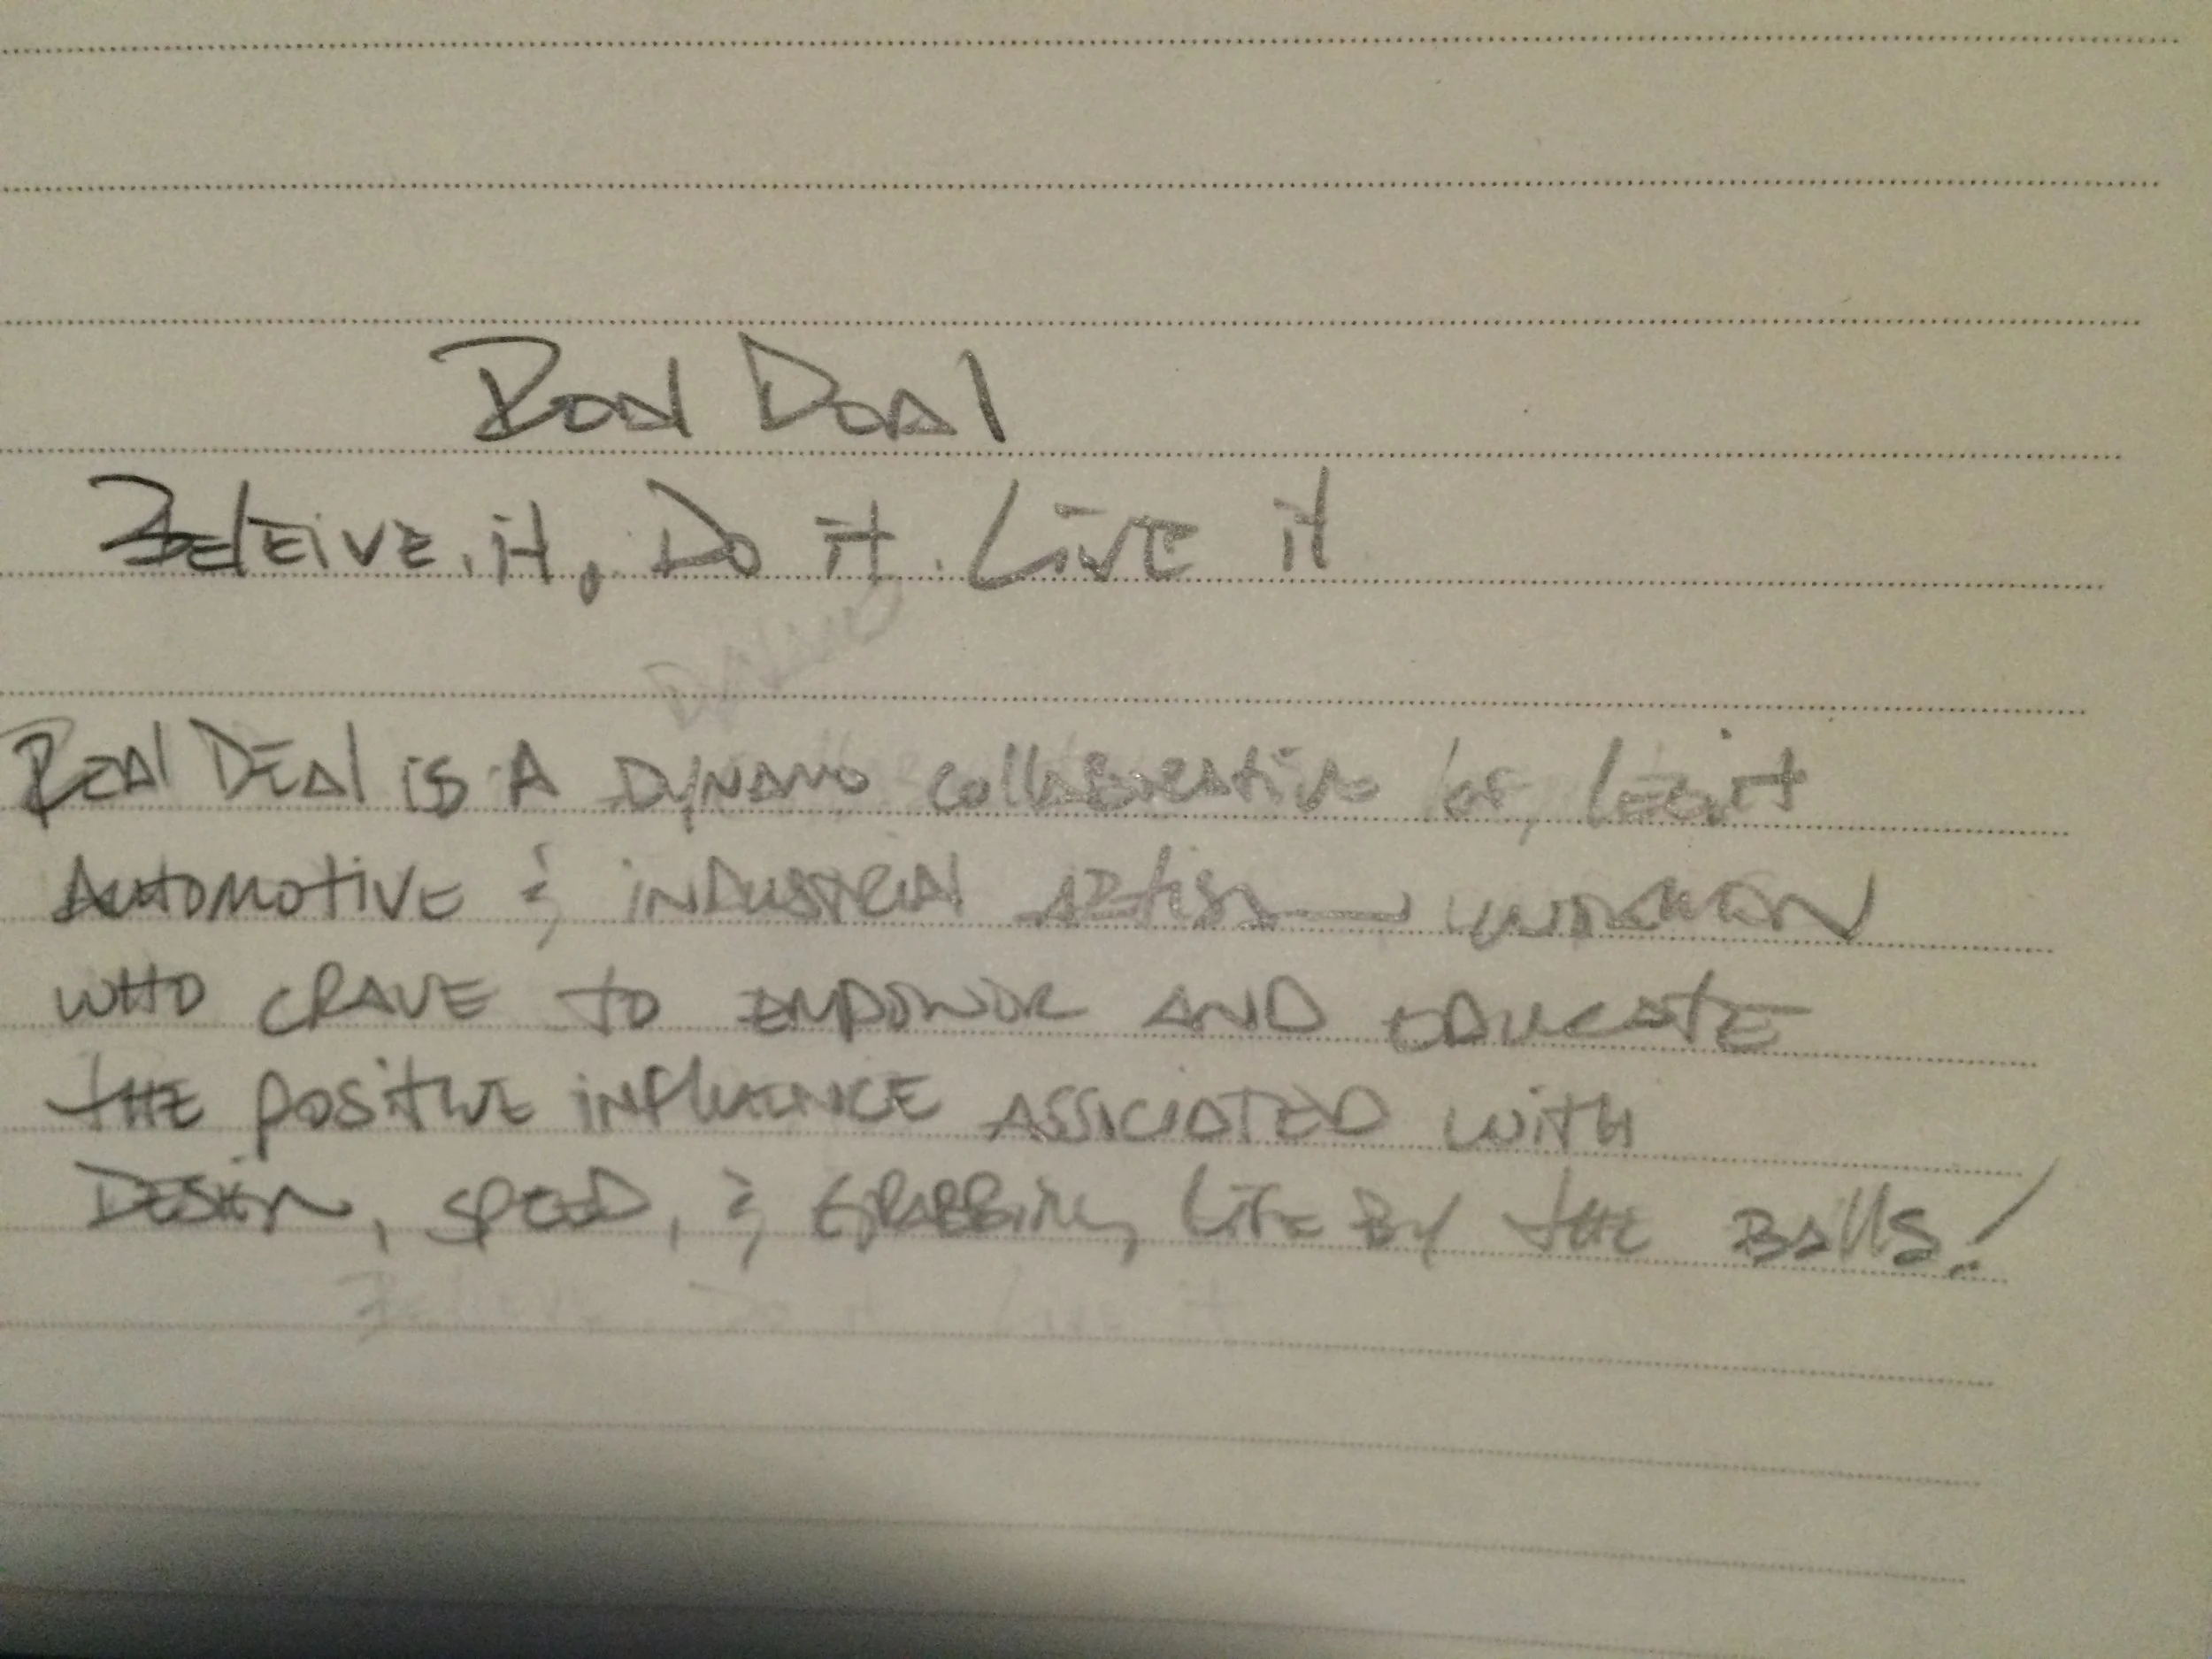 Real Deal
Beleive it, Do it. Live it
Real Deal is A Dynamo collaborative for, legit
Automotive & industrial artisan women
who crave to empower and educate
the positive influence associated with
Design, speed, & grabbing life by the balls!
Beleive Do it Live it